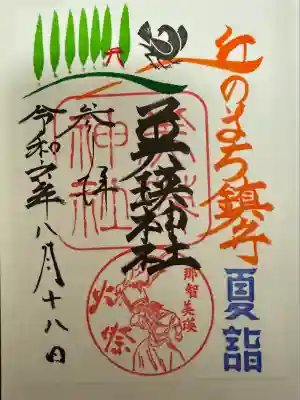 丘のまち鎮守
夏詣
美瑛神社
参拝
令和六年八月十八日
美瑛神社
那智美瑛
火祭